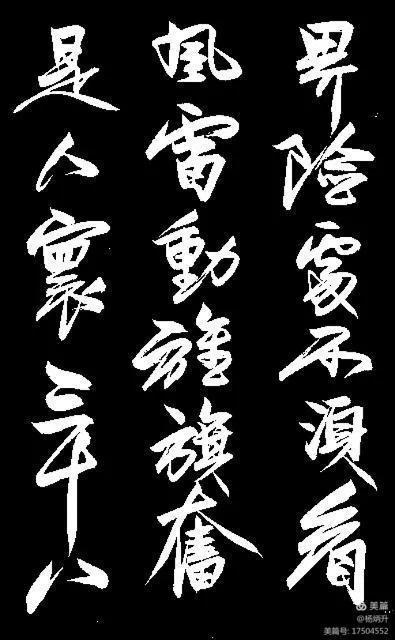 界險處不須看
風雷動旌旗奮
是人寰三十八
美篇
@杨炳升
美篇号: 17504552